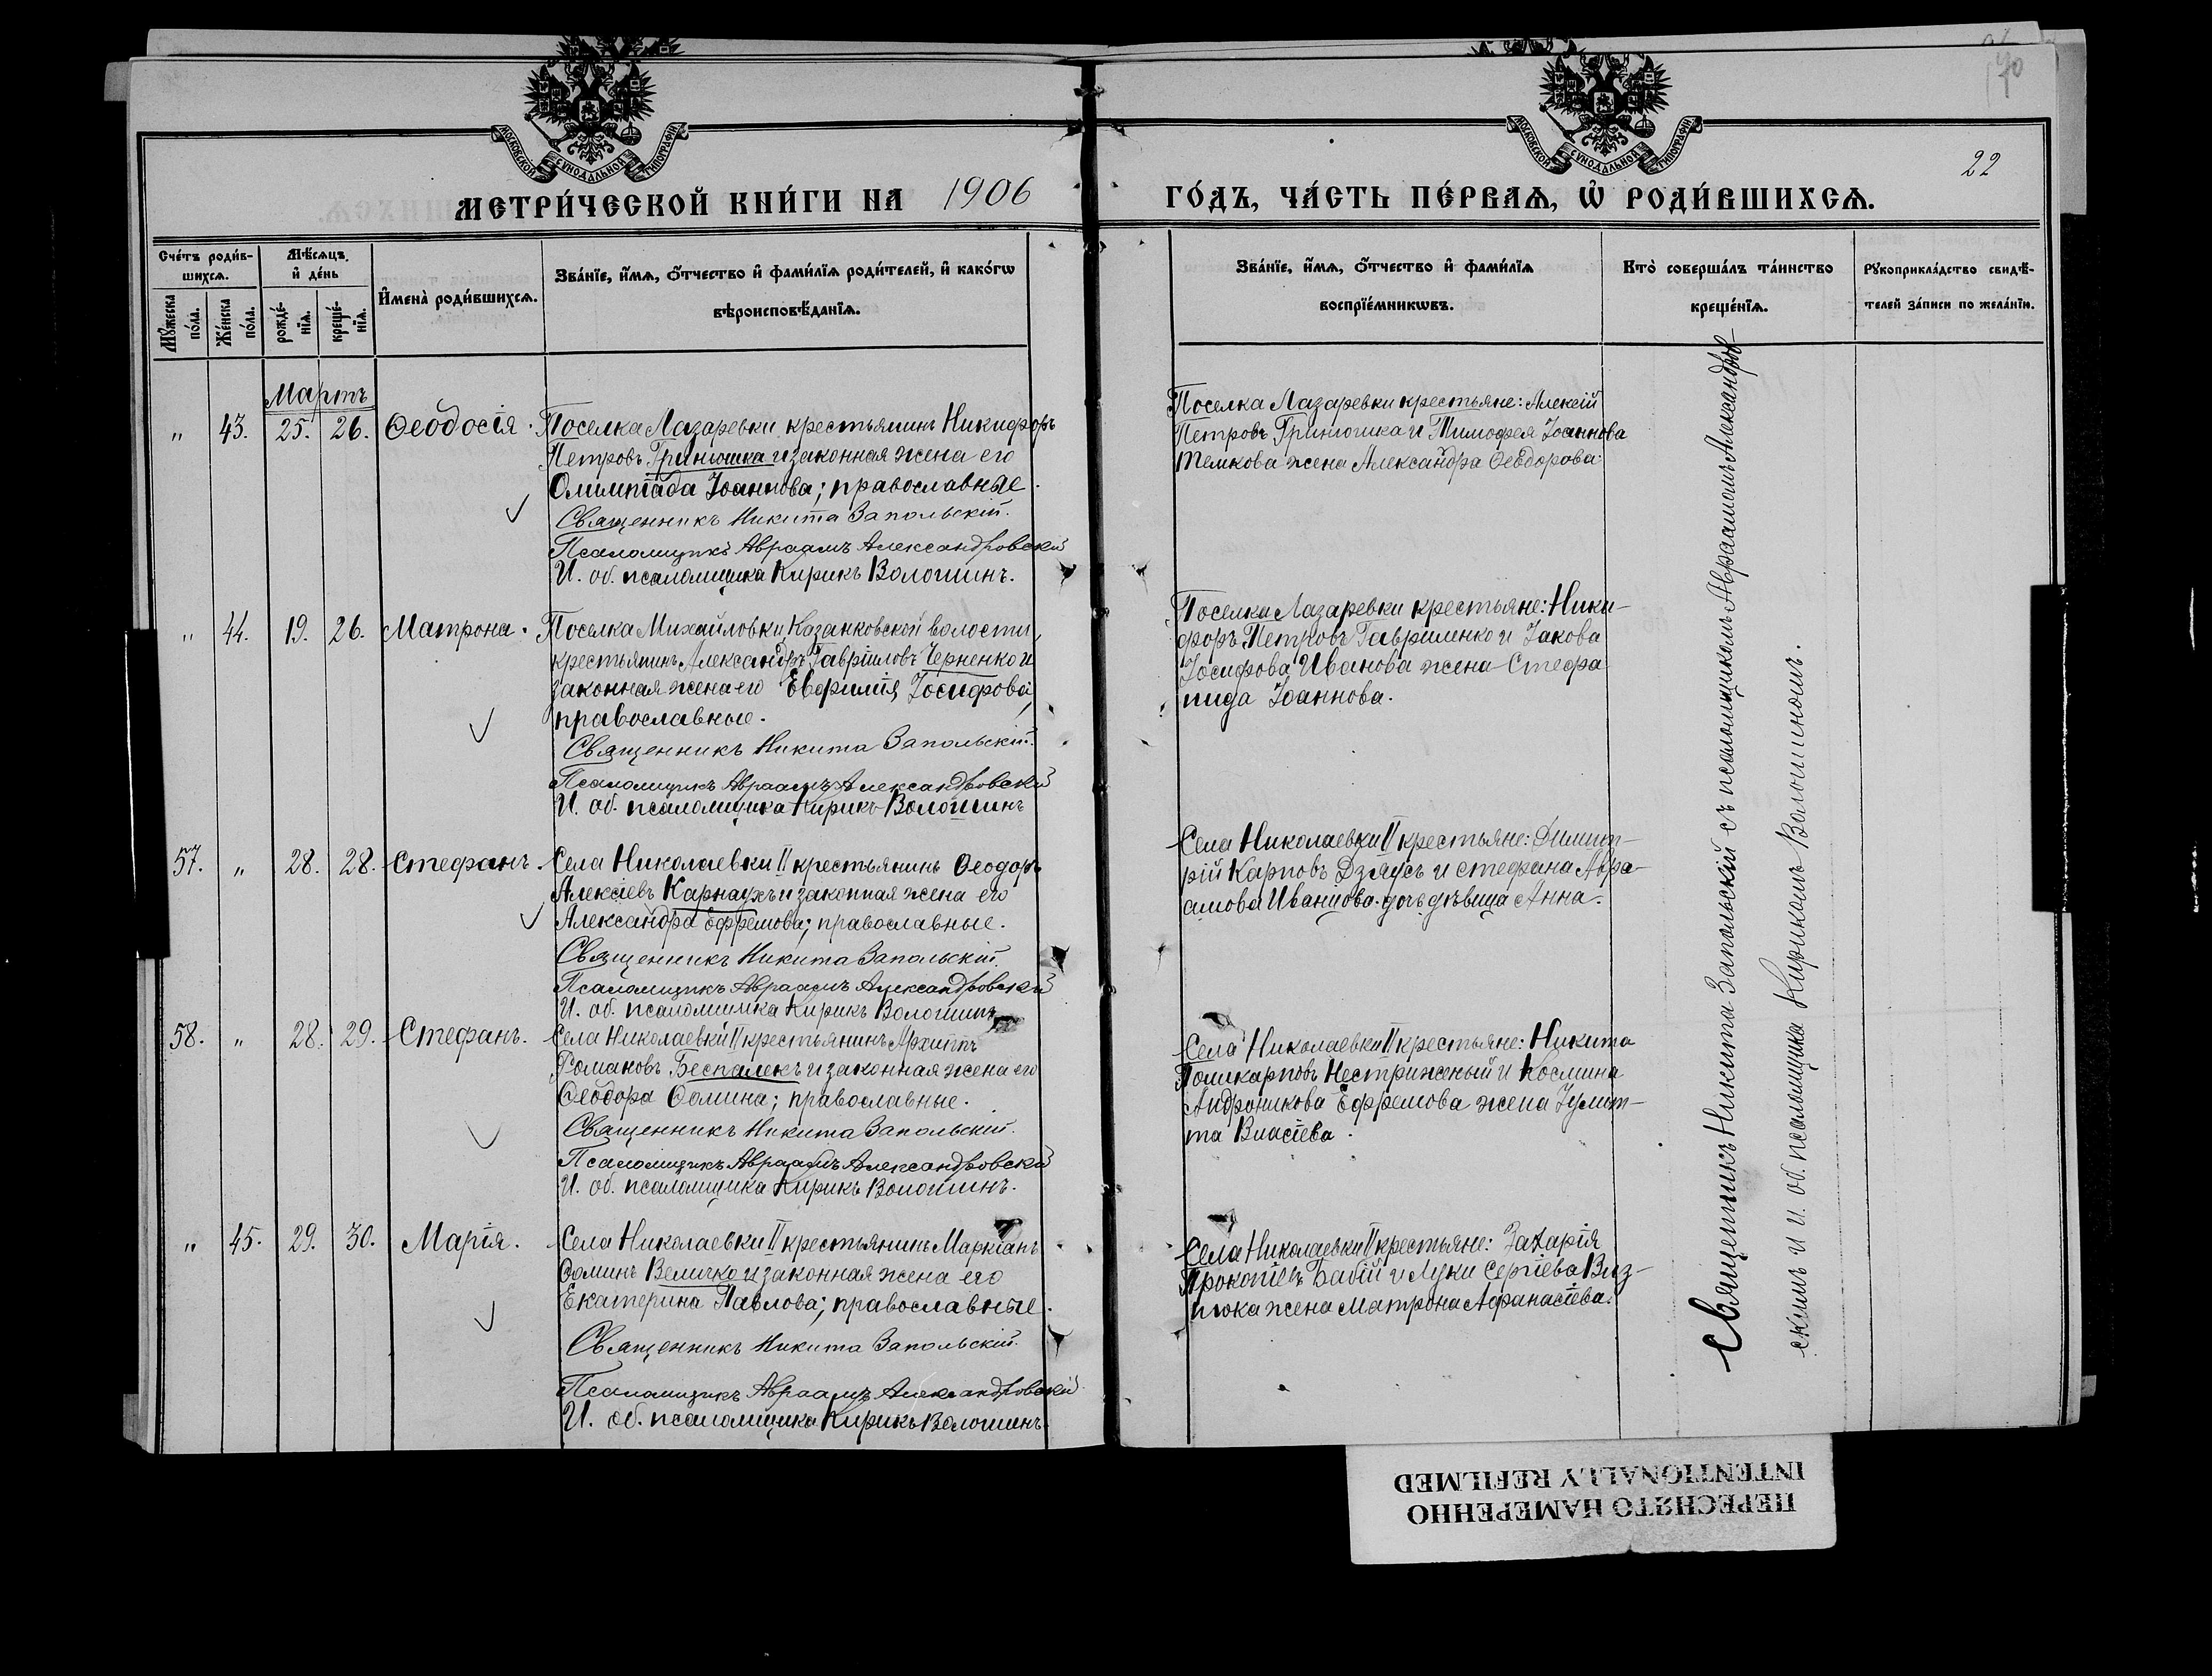 90
22
МОСКОВСКОЙ СѴНОДАЛЬНОЙ ТИПОГРАФІИ
МОСКОВСКОЙ СѴНОДАЛЬНОЙ ТИПОГРАФІИ
МЕТРИ́ЧЕСКОЙ КНИ́ГИ НА 1906
ГО́ДЪ, ЧА́СТЬ ПЕ́РВАѦ, Ѡ҆ РОДИ́ВШИХСѦ.
Сче́тъ роди́в-
шихсѧ.
Мꙋ́жеска по́ла.
Же́нска по́ла.
Мѣ́сѧцъ,
и҆ де́нь
рожде́-
нїѧ.
креще́-
нїѧ.
И҆мена̀ роди́вшихсѧ.
Зва́нїе, и҆́мѧ, ѻ҆́тчество и҆ фами́лїѧ роди́телей, и҆ како́гѡ
вѣроисповѣ́данїѧ.
Зва́нїе, и҆́мѧ, ѻ҆́тчество и҆ фами́лїѧ
воспрїе́мникѡвъ.
Кто̀ соверша́лъ та́инство
креще́нїѧ.
Рꙋкоприкла́дство свидѣ́-
телей за́писи по жела́нїю.
Мартъ
„ 43. 25. 26. Ѳеодосія.
Поселка Лазаревки крестьянинъ Никифоръ
Петровъ Гринюшка и законная жена его
Олимпіада Іоаннова; православные.
Священникъ Никита Запольскій.
Псаломщикъ Авраамъ Александровскій
И. об. псаломщика Кирикъ Волошинъ.
Поселка Лазаревки крестьяне: Алексій
Петровъ Гринюшка и Тимофея Іоаннова
Темкова жена Александра Ѳеодорова.
„ 44. 19. 26. Матрона.
Поселка Михайловки Казанковской волости,
крестьянинъ Александръ Гавріиловъ Черненко и
законная жена его Евфимія Іосифова,
православные.
Священникъ Никита Запольскій.
Псаломщикъ Авраамъ Александровскій
И. об. псаломщика Кирикъ Волошинъ
Поселка Лазаревки крестьяне: Ники-
форъ Петровъ Гавриленко и Іакова
Іосифова Иванова жена Стефа-
нида Іоаннова.
57. „ 28. 28. Стефанъ.
Села Николаевки II крестьянинъ Ѳеодоръ
Алексіевъ Карнаухъ и законная жена его
Александра Ефремова; православные.
Священникъ Никита Запольскій.
Псаломщикъ Авраамъ Александровскій
И. об. псаломщика Кирикъ Волошинъ
Села Николаевки II крестьяне: Димит-
рій Карповъ Дзяусъ и Стефана Авра-
амова Иванцова дочь дѣвица Анна.
58. „ 28. 29. Стефанъ.
Села Николаевки II крестьянинъ Архиппъ
Романовъ Беспалекъ и законная жена его
Ѳеодора Ѳомина; православные.
Священникъ Никита Запольскій.
Псаломщикъ Авраамъ Александровскій
И. об. псаломщика Кирикъ Волошинъ.
Села Николаевки II крестьяне: Никита
Поликарповъ Нестриженый и Космина
Андроникова Ефремова жена Іулит-
та Власіева.
„ 45. 29. 30. Марія.
Села Николаевки II крестьянинъ Маркіанъ
Ѳоминъ Величко и законная жена его
Екатерина Павлова; православные.
Священникъ Никита Запольскій.
Псаломщикъ Авраамъ Александровскій
И. об. псаломщика Кирикъ Волошинъ.
Села Николаевки II крестьяне: Захарія
Прокопіевъ Бабій и Луки Сергіева Виз-
нюка жена Матрона Афанасіева.
Священникъ Никита Запольскій съ псаломщикомъ Авраамомъ Александров
скимъ и и. об. псаломщика Кирикомъ Волошиномъ.
ПЕРЕСНЯТО НАМЕРЕННО
INTENTIONALLY REFILMED